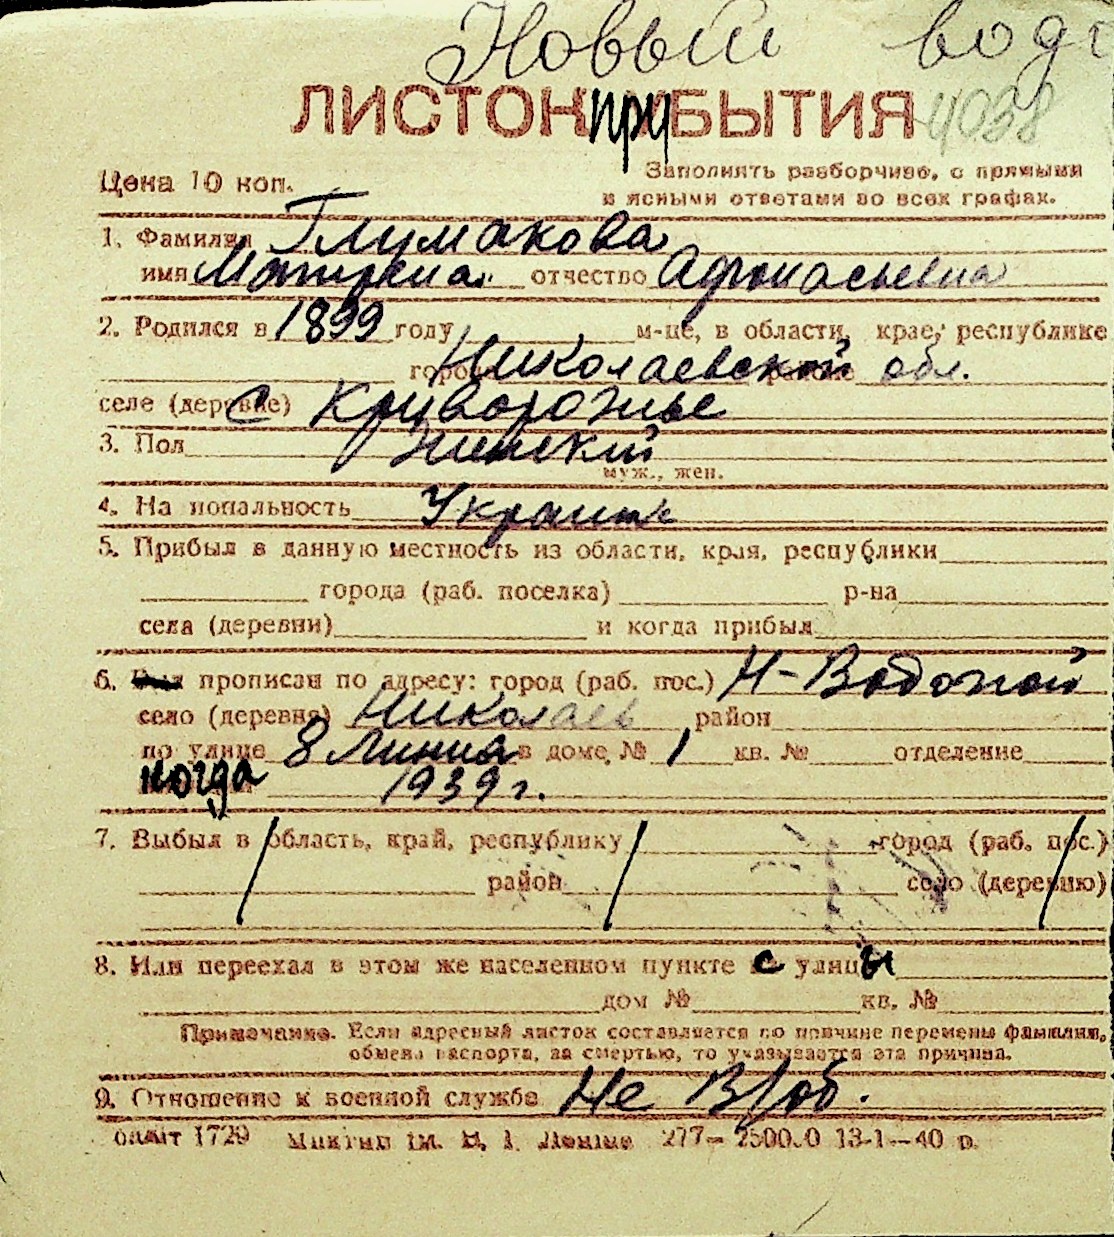 Новый водо
ЛИСТОК ПРИБЫТИЯ 4038
Цена 10 коп. Заполнять разборчиво, с прямыми
и ясными ответами во всех графах.
1. Фамилия Глумакова
имя Матрена отчество Афонасьевна
2. Родился в 1899 году м-це, в области, крае, республике
городе Николаевской обл.
селе (деревне) с Криворожье
3. Пол женский
муж., жен.
4. Национальность Украинк
5. Прибыл в данную местность из области, края, республики
города (раб. поселка) р-на
села (деревни) и когда прибыл
6. Был прописан по адресу: город (раб. пос.) Н-Водопой
село (деревня) Николаев район
по улице 8 Линиа в доме № 1 кв. № отделение
когда 1939 г.
7. Выбыл в область, край, республику город (раб. пос.)
район село (деревню)
8. Или переехал в этом же населенном пункте с улицы
дом № кв. №
Примечание. Если адресный листок составляется по причине перемены фамилии,
обмена паспорта, за смертью, то указывается эта причина.
9. Отношение к военной службе Не В/об.
1729 277— 250000 13-1—40 р.